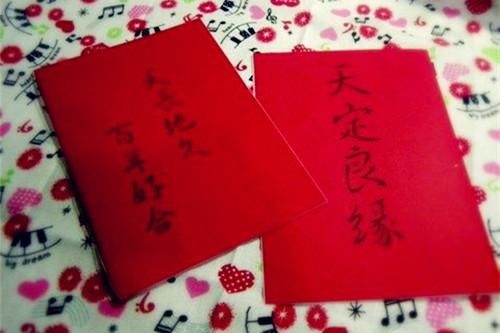 天長地久
百年好合
天定良緣
my dream